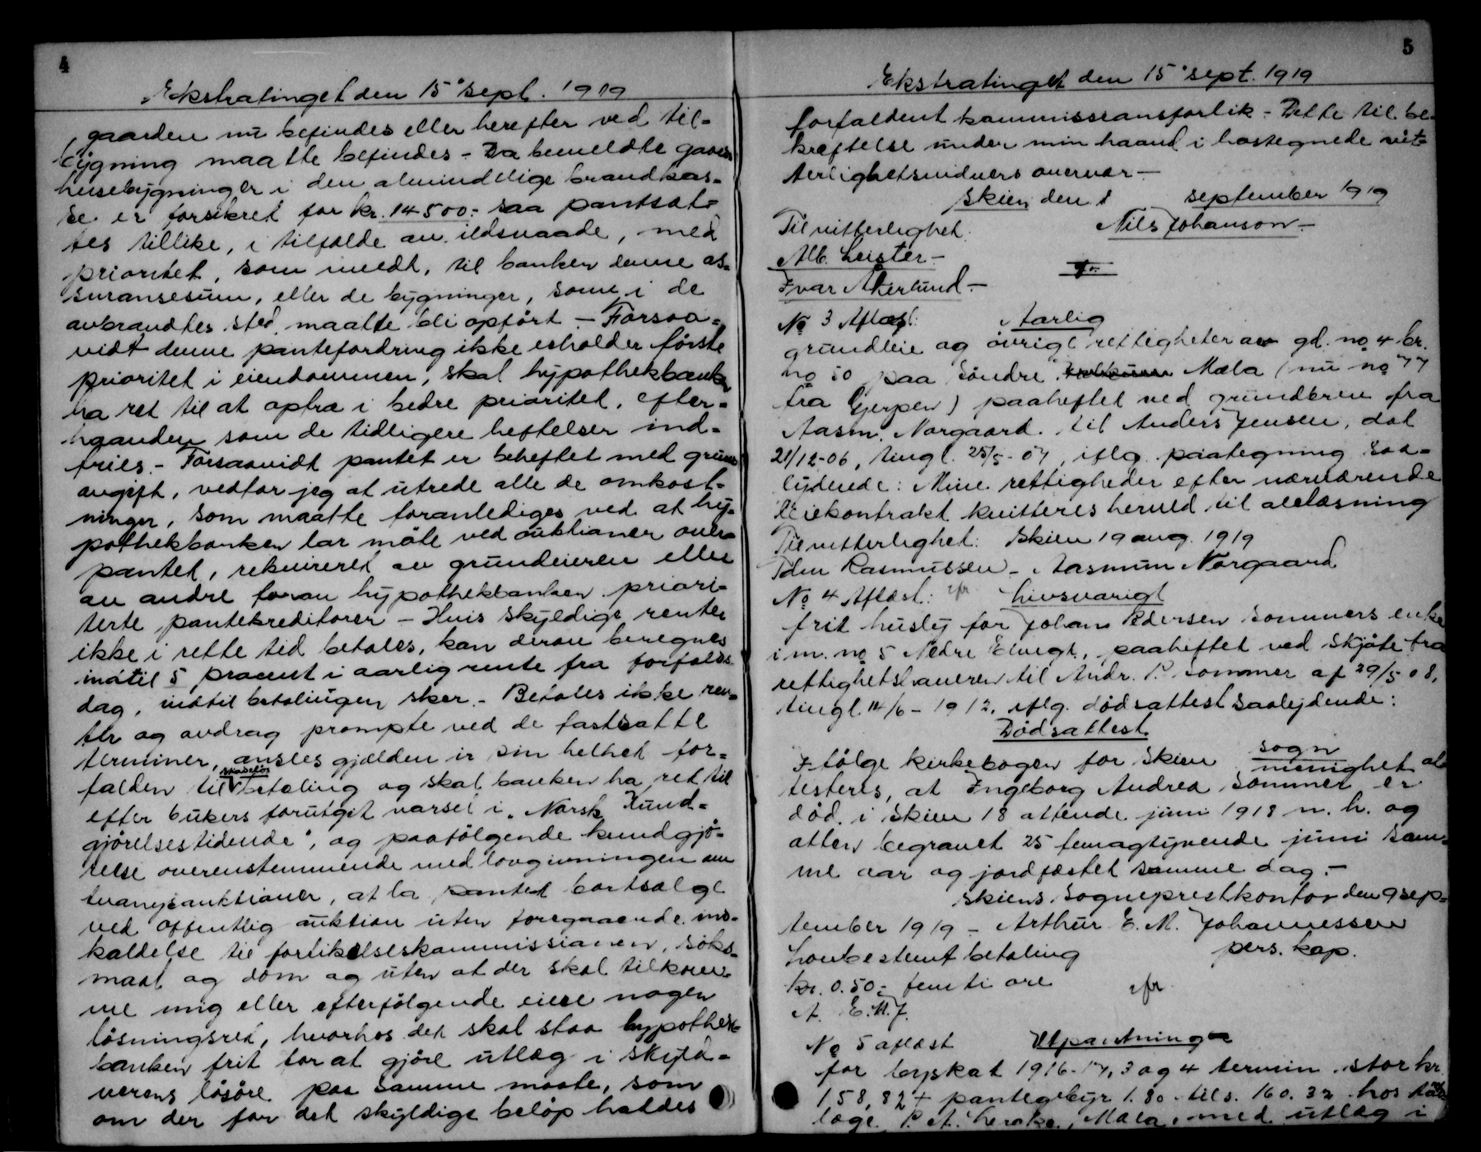 4
Ekstratinget den 15 sept. 1919
gaarden nu befindes eller herefter ved til-
bygning maatte befindes - Da bemeldte gaards
husebygninger i den almindelige brandkas-
se er forsikret for kr. 14500.- saa pantsæt-
tes tillike, i tilfælde av ildsvaade, med
prioritet, som meldt, til banken denne as-
suransesum, eller de bygninger, some i de
avbrændtes sted maatte bli opført - Forsaa-
vidt denne pantefordring ikke erholder første
prioritet i eiendommen, skal hypothekbanken
ha ret til at optræ i bedre prioritet, efter-
haanden som de tidligere heftelser ind-
fries. - Forsaavidt pantet er beheftet med grund
avgift, vedtar jeg at utrede alle de omkost-
ninger, som maatte foranlediges ved at hy-
pothekbanken lar møte ved auktioner over
pantet, rekvireret av grundeieren eller
av andre foran hypothekbanken priori-
terte pantekreditorer - Hvis skyldige renter
ikke i rette tid betales, kan derav beregnes
indtil 5 procent i aarlig rente fra forfalds
dag, indtil betalingen sker. - Betales ikke ren-
ter og avdrag prompte ved de fastsatte
terminer, ansees gjælden i sin helhet for-
falden til skadesløs betaling og skal banken ha ret til
efter 6 ukers forutgit varsel i "Norsk Kund-
gjørelsestidende", og paafølgende kundgjø-
relse overenstemmende med lovgivningen om
tvangsauktioner, at la pantet bortsælge
ved offentlig auktion uten foregaaende ind-
kaldelse til forlikelseskommissionen, søks-
maal og dom og uten at der skal tilkom-
me mig eller efterfølgende eiere nogen
løsningsret, hvorhos det skal staa hypothek-
banken frit for at gjøre utlæg i skyld-
nerens løsøre paa samme maate, som
om der for det skyldige beløp haddes
5
Ekstratinget den 15 sept. 1919
forfaldent kommissionsforlik - Dette til be-
kræftelse under min haand i hostegnede vit-
terlighetsvidners overvær -
Skien den 1 september 1919
Til vitterlighet. Nils Johanson -
Alb. Leister -
Ivar Åkerlund -
No 3 Aflæst: Aarlig
grundleie og øvrige rettigheter av gd. no 4 br.
no 50 paa søndre Mæla (nu no 77
fra Gjerpen) paaheftet ved grundbrev fra
Aasm. Norgaard til Anders Jensen, dat
21/12-06, tingl. 25/5-07, iflg. paategning saa-
lydende: Mine rettigheder efter nærværende
leiekontrakt kvitteres herved til avlæsning
Til vitterlighet: Skien 19 aug. 1919
Rasmussen - Aasmun Norgaard
No 4 Aflæst: Livsvarigt
frit husly for Johan Pedersen Sommers enke
i m. no 5 Nedre Elvegt., paaheftet ved skjøte fra
rettighetshaveren til Andr. P. Sommer af 29/5 08,
tingl. 12/6 - 1912, iflg. dødsattest saalydende:
Dødsattest.
Ifølge kirkebogen for Skien sogn menighet at-
testeres, at Ingeborg Andrea Sommer er
død i Skien 18 attende juni 1918 n. h. og
atten begravet 25 femogtyvende juni sam-
me aar og jordfæstet samme dag. -
Skiens Sogneprestkontor den 9 sep-
tember 1919 - Arthur E. M. Johannessen
Lovbestemt betaling pers. kap.
kr. 0.50 - femti øre
A. E. M. J.
No 5 aflæst Utpantning
for byskat 1916-17, 3 og 4 termin stor kr.
158,82 + pantegebyr 1.80 tils. 160.32 hos
læge P. A. Mæla, med utlæg i